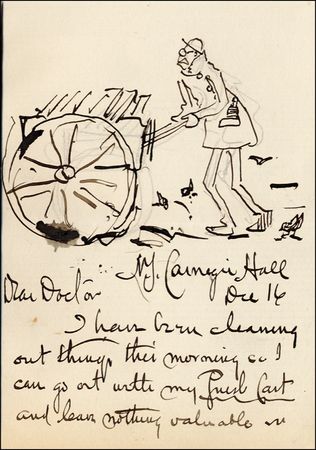 N.Y. Carnegie Hall
Dear Doctor Dec 16
I have been cleaning
out things this morning so I
can go out with my Push Cart
and leave nothing valuable in